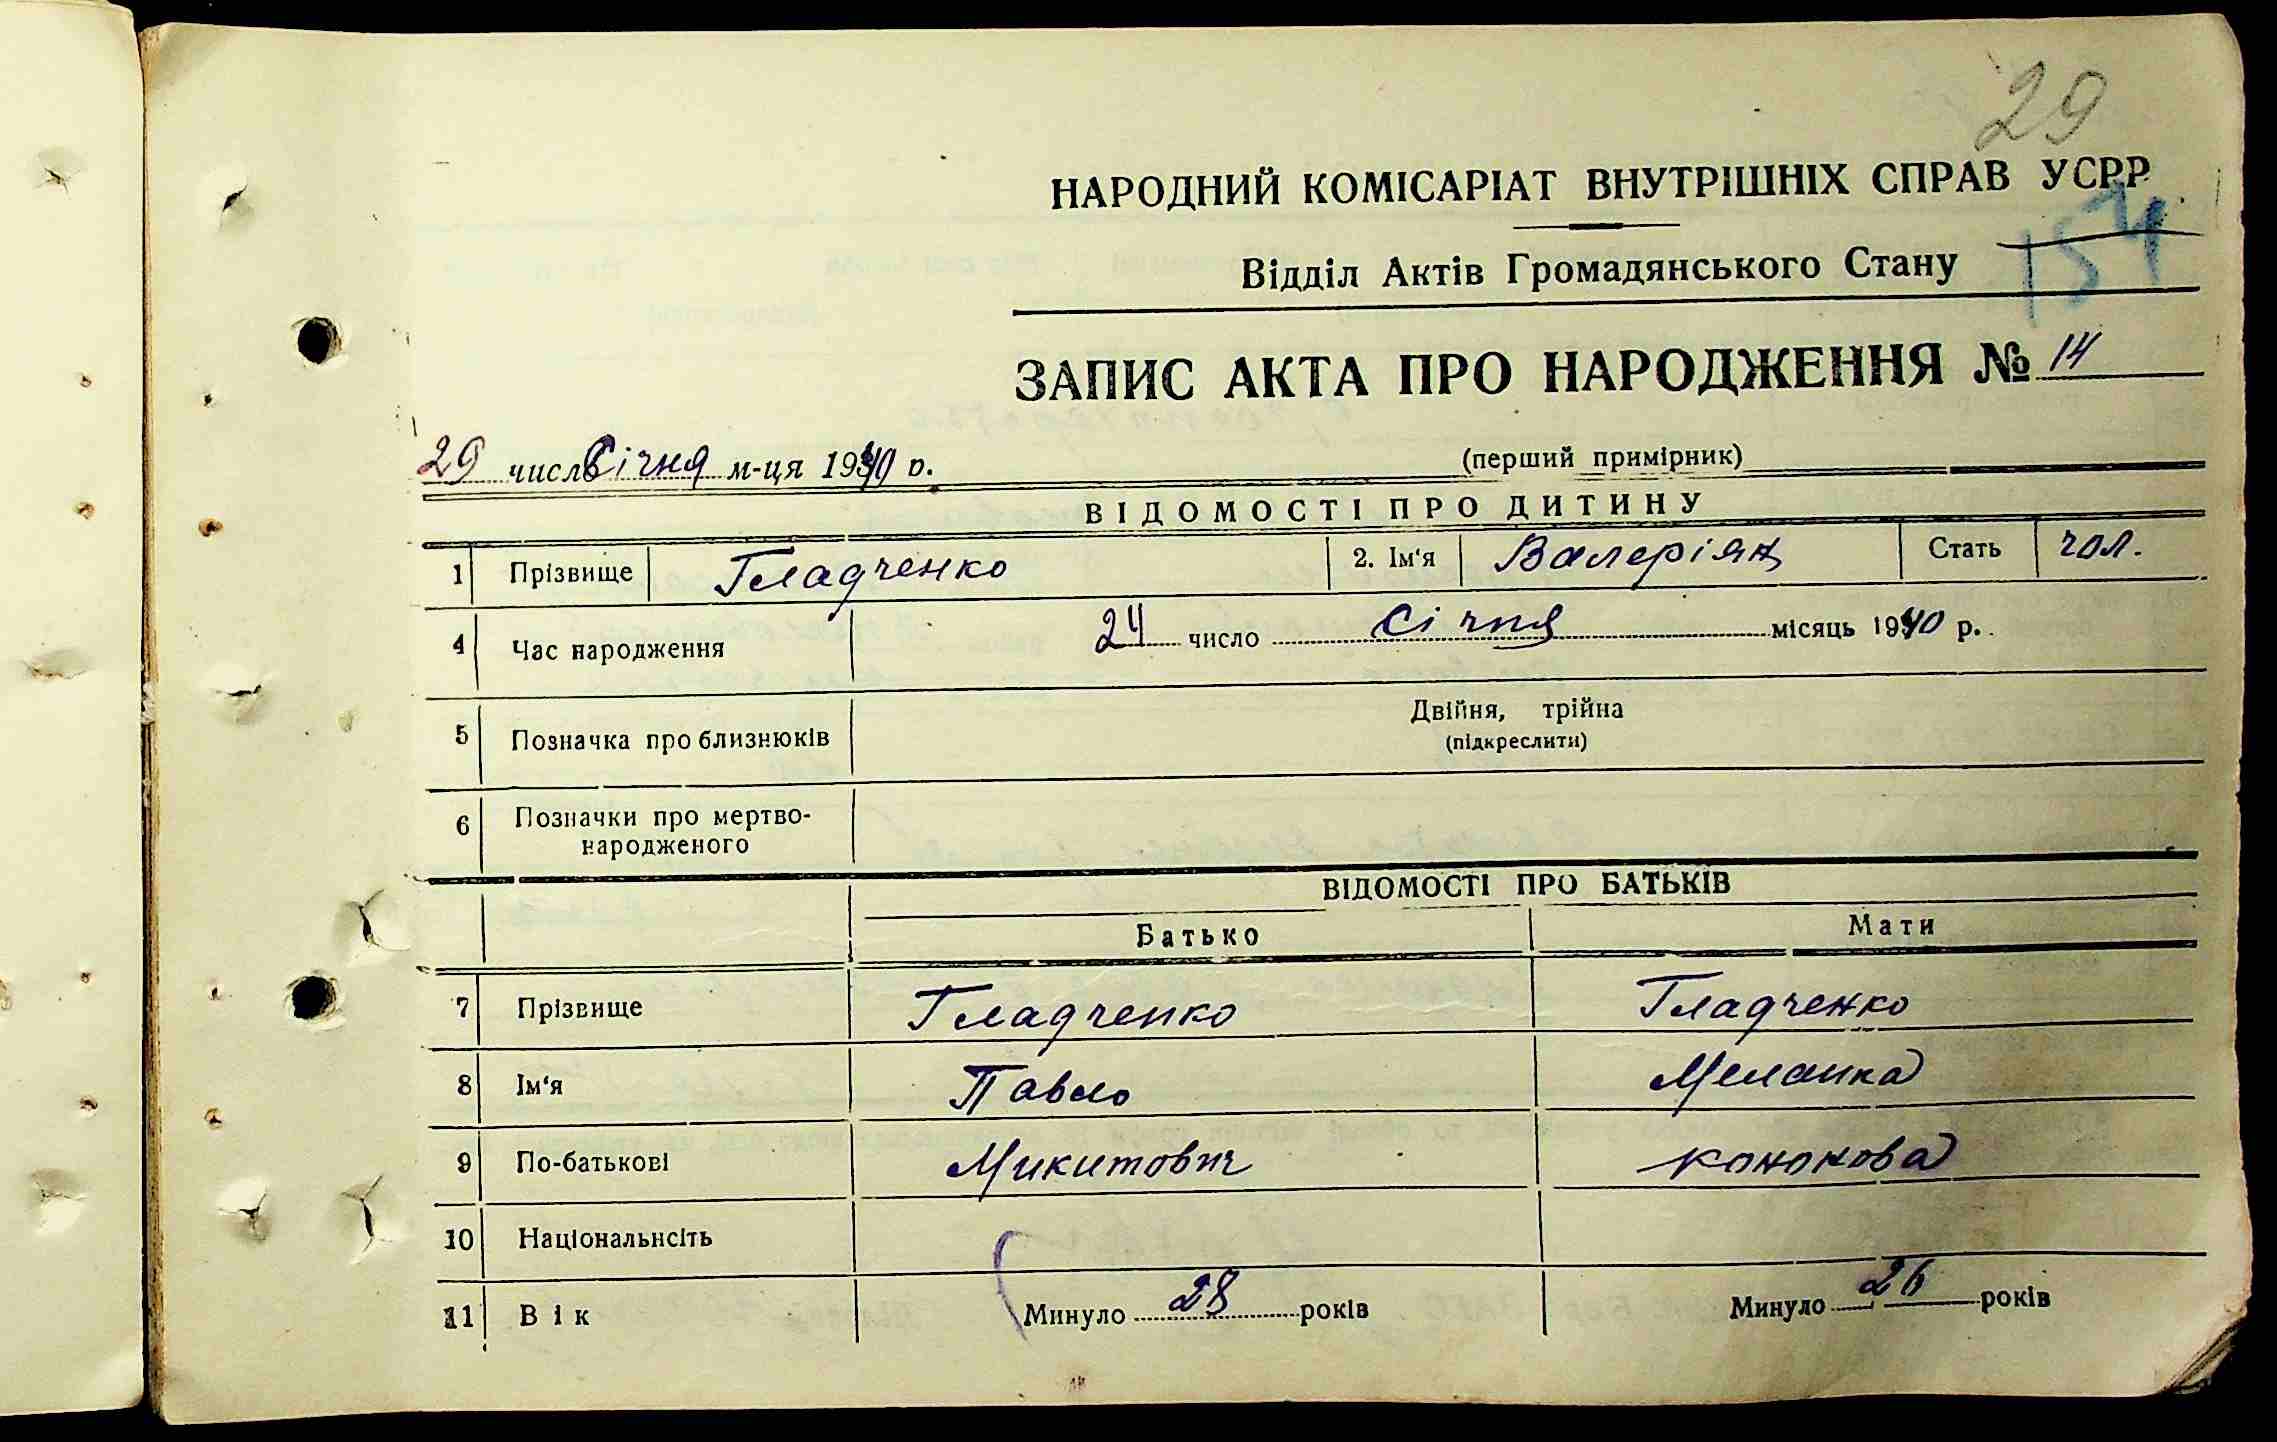 29
НАРОДНИЙ КОМІСАРІАТ ВНУТРІШНІХ СПРАВ УСРР
154
Відділ Актів Громадянського Стану
ЗАПИС АКТА ПРО НАРОДЖЕННЯ № 14
29 числа Січня м-ця 1940 р.
(перший примірник)
ВІДОМОСТІ ПРО ДИТИНУ
1 Прізвище Гладченко 2. Ім'я Валеріян Стать чол.
4 Час народження 24 число Січня місяць 1940 р.
5 Позначка про близнюків Двійня, трійна
(підкреслити)
6 Позначки про мертво-
народженого
ВІДОМОСТІ ПРО БАТЬКІВ
Батько Мати
7 Прізвище Гладченко Гладченко
8 Ім'я Павло Меланка
9 По-батькові Микитович Кононова
10 Національнсіть
11 Вік Минуло 28 років Минуло 26 років